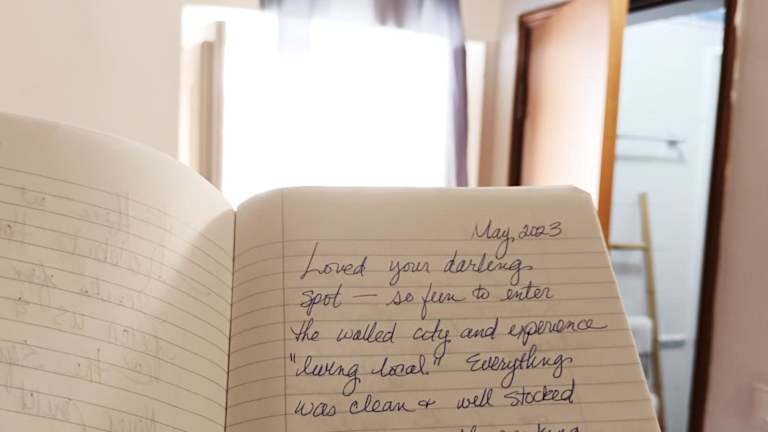 May, 2023
Loved your darling
spot — so fun to enter
the walled city and experience
"living local." Everything
was clean + well stocked